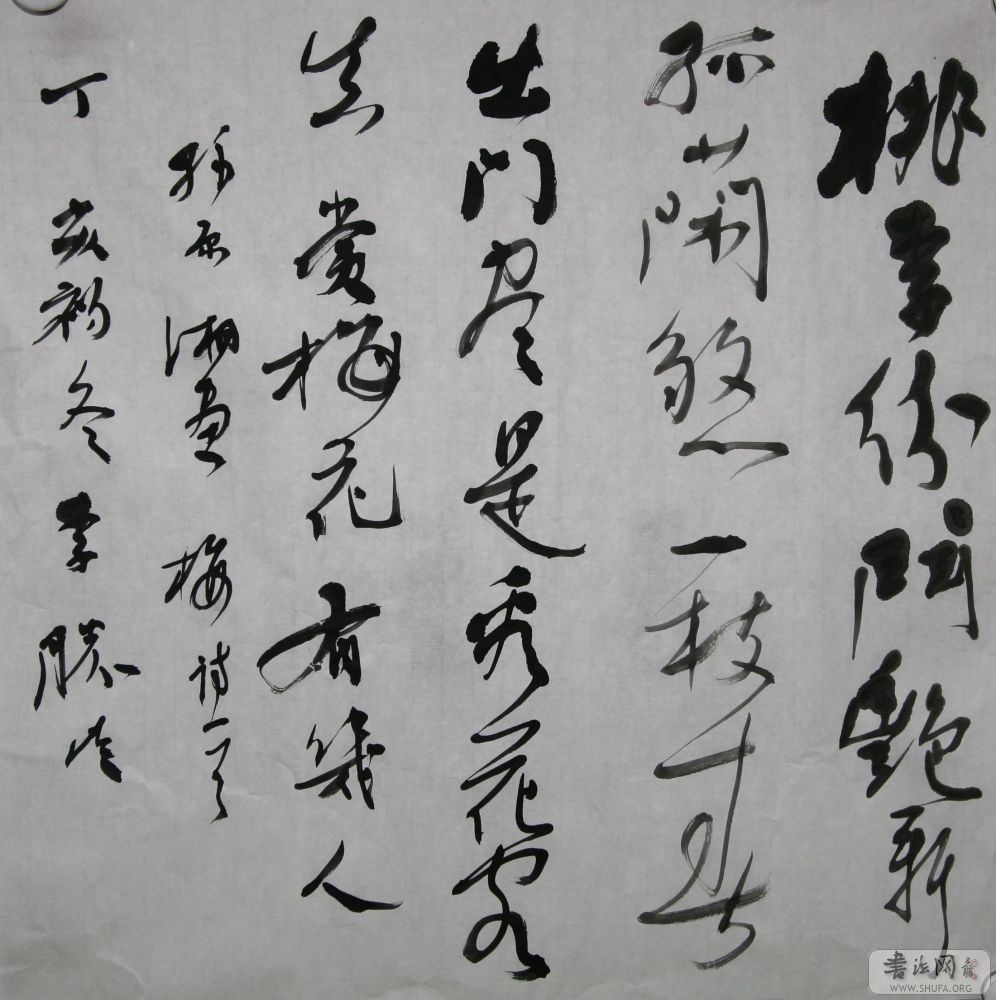 桃李份鬥艷新
孤蘭煞一枝春
出門尽是看花客
真賞梅花有幾人
孫原湘畫梅詩一首
丁亥初冬李勝
書法网
WWW.SHUFA.ORG